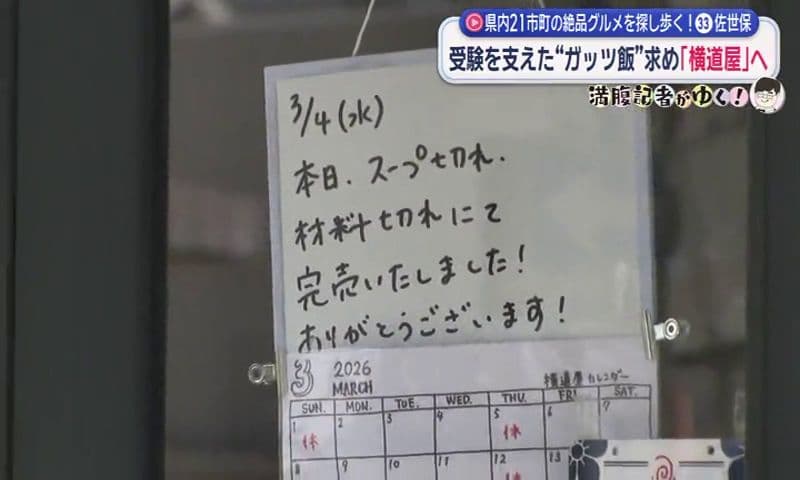 県内21市町の絶品グルメを探し歩く！㉝佐世保
受験を支えた“ガッツ飯”求め「横道屋」へ
満腹記者がゆく！
3/4(水)
本日、スープ切れ、
材料切れにて
完売いたしました！
ありがとうございます！
3 2026 横道屋カレンダー
MARCH
SUN. MON. TUE. WED. THU. FRI SAT.
1 2 3 4 5 6 7
休 休
8 9 10 11 12 13